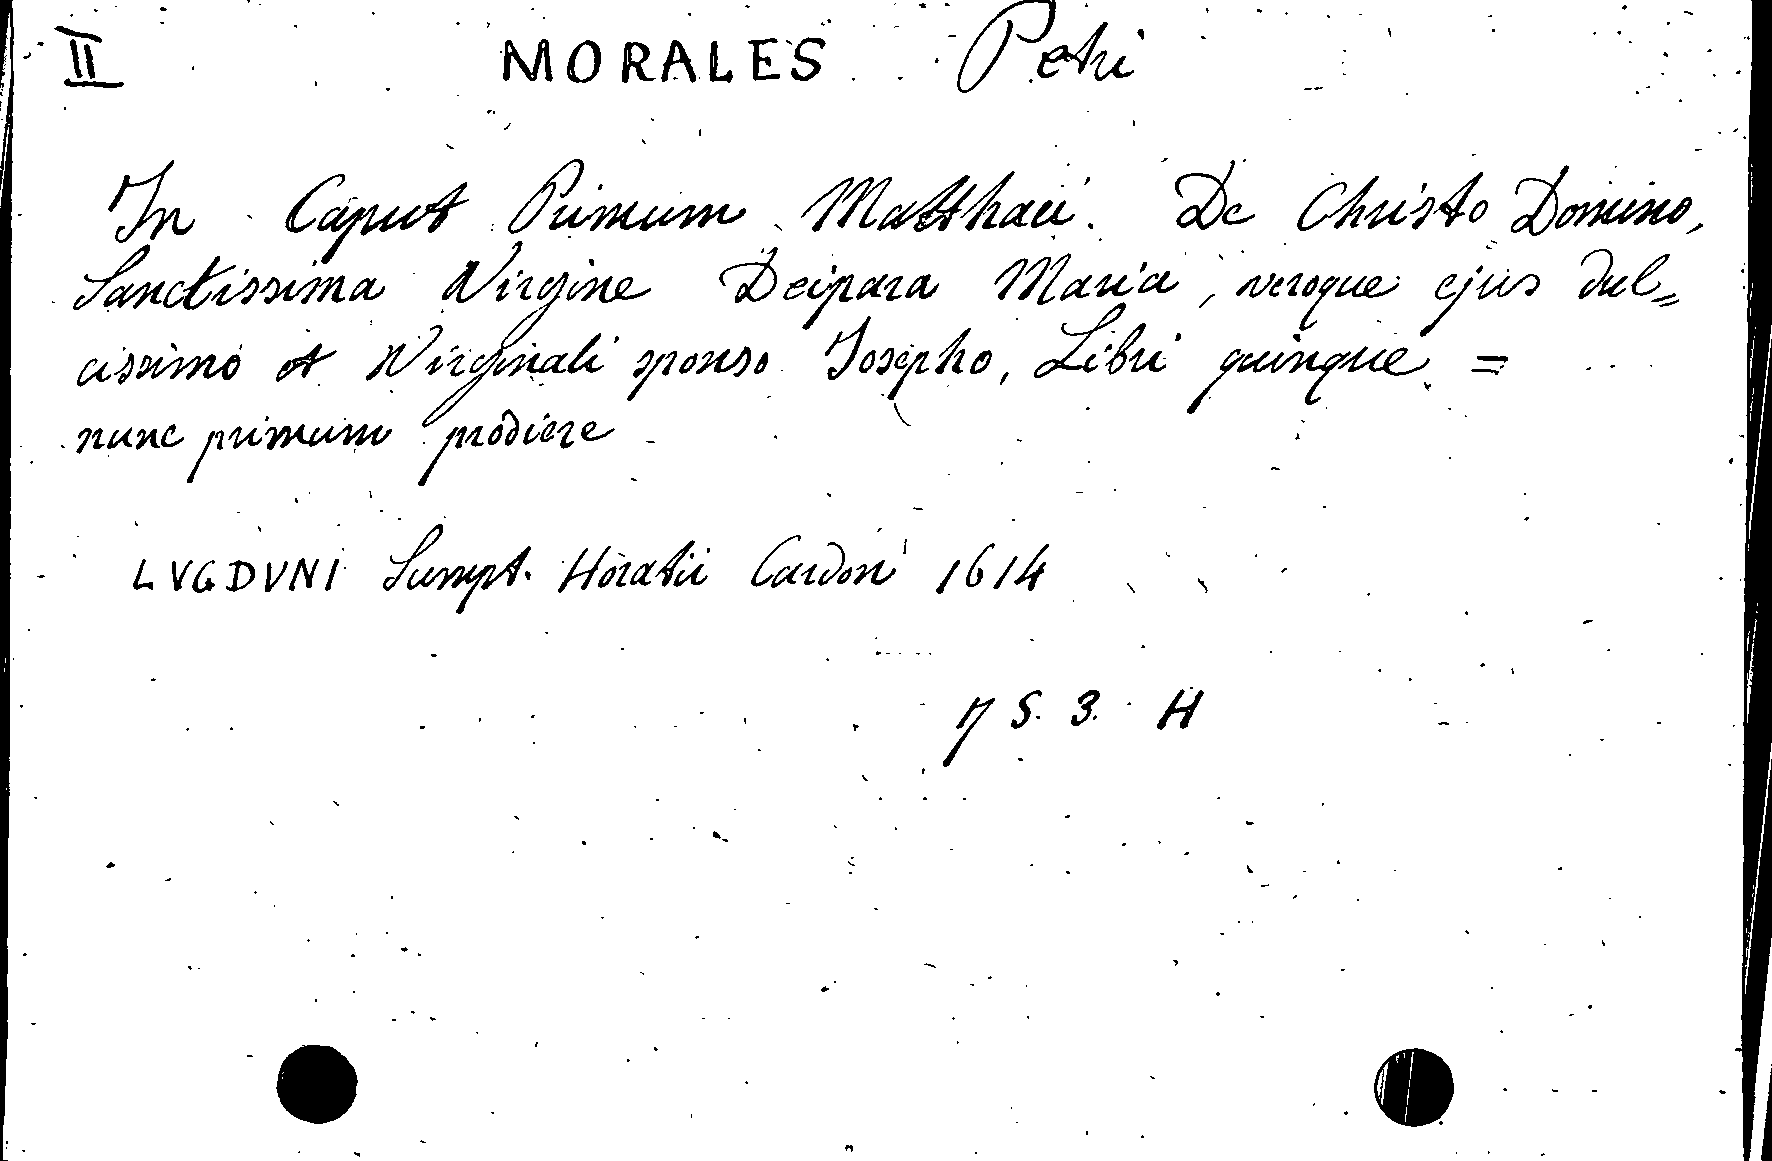 II MORALES Petri
In Caput Primum Matthaei. De Christo Domino,
Sanctissima Virgine Deipara Maria, veroque ejus dul=
cissimo et Virginali sponso Josepho, Libri quinque =
nunc primum prodiere
LVGDVNI Sumpt. Horatii Cardon 1614
7 S. 3. H